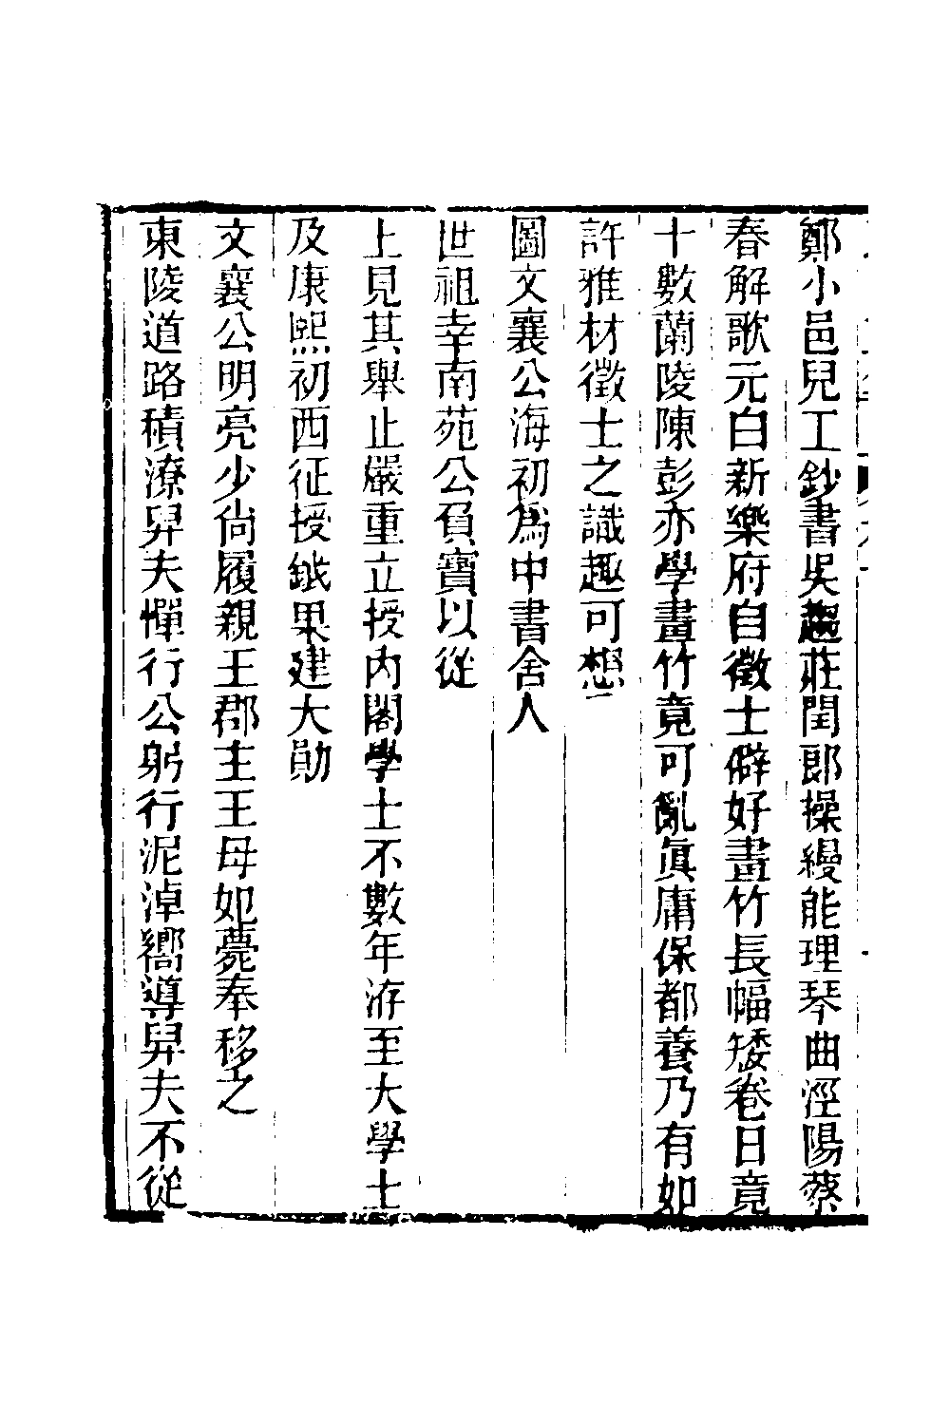 鄭小邑兒工鈔書吳趨莊閏郎操縵能理琴曲涇陽蔡
春解歌元白新樂府自徵士僻好畫竹長幅矮卷日竟
十數蘭陵陳彭亦學畫竹竟可亂眞庸保都養乃有如
許雅材徵士之識趣可想
圖文襄公海初爲中書舍人
世祖幸南苑公負寶以從
上見其舉止嚴重立授內閣學士不數年洊至大學士
及康熙初西征授鉞果建大勛
文襄公明亮少尙履親王郡主王母妃薨奉移之
東陵道路積潦舁夫憚行公躬行泥淖嚮導舁夫不從